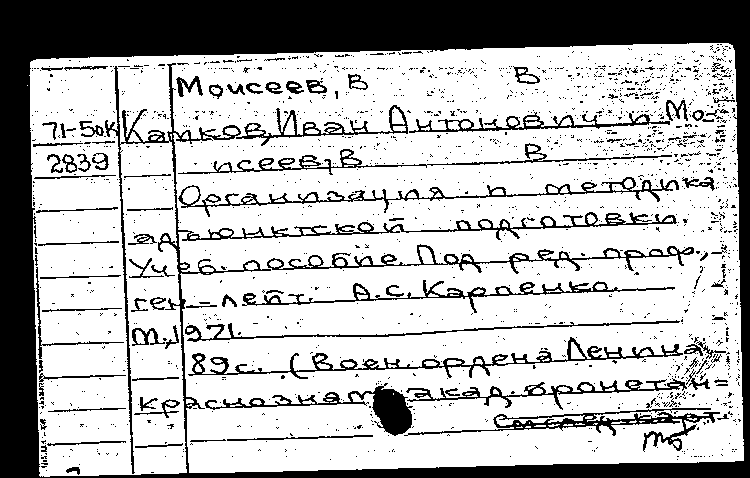 Моисеев, В В
71-50к Катков, Иван Антонович и Мо-
2839 исеев, В В
Организация и методика
адъюнктской подготовки.
Учеб. пособие. Под ред. проф.,
ген.-лейт. А.С. Карпенко.
М., 1971.
89с. (Воен. ордена Ленина
краснознам. акад. бронетан=
см след. карт.